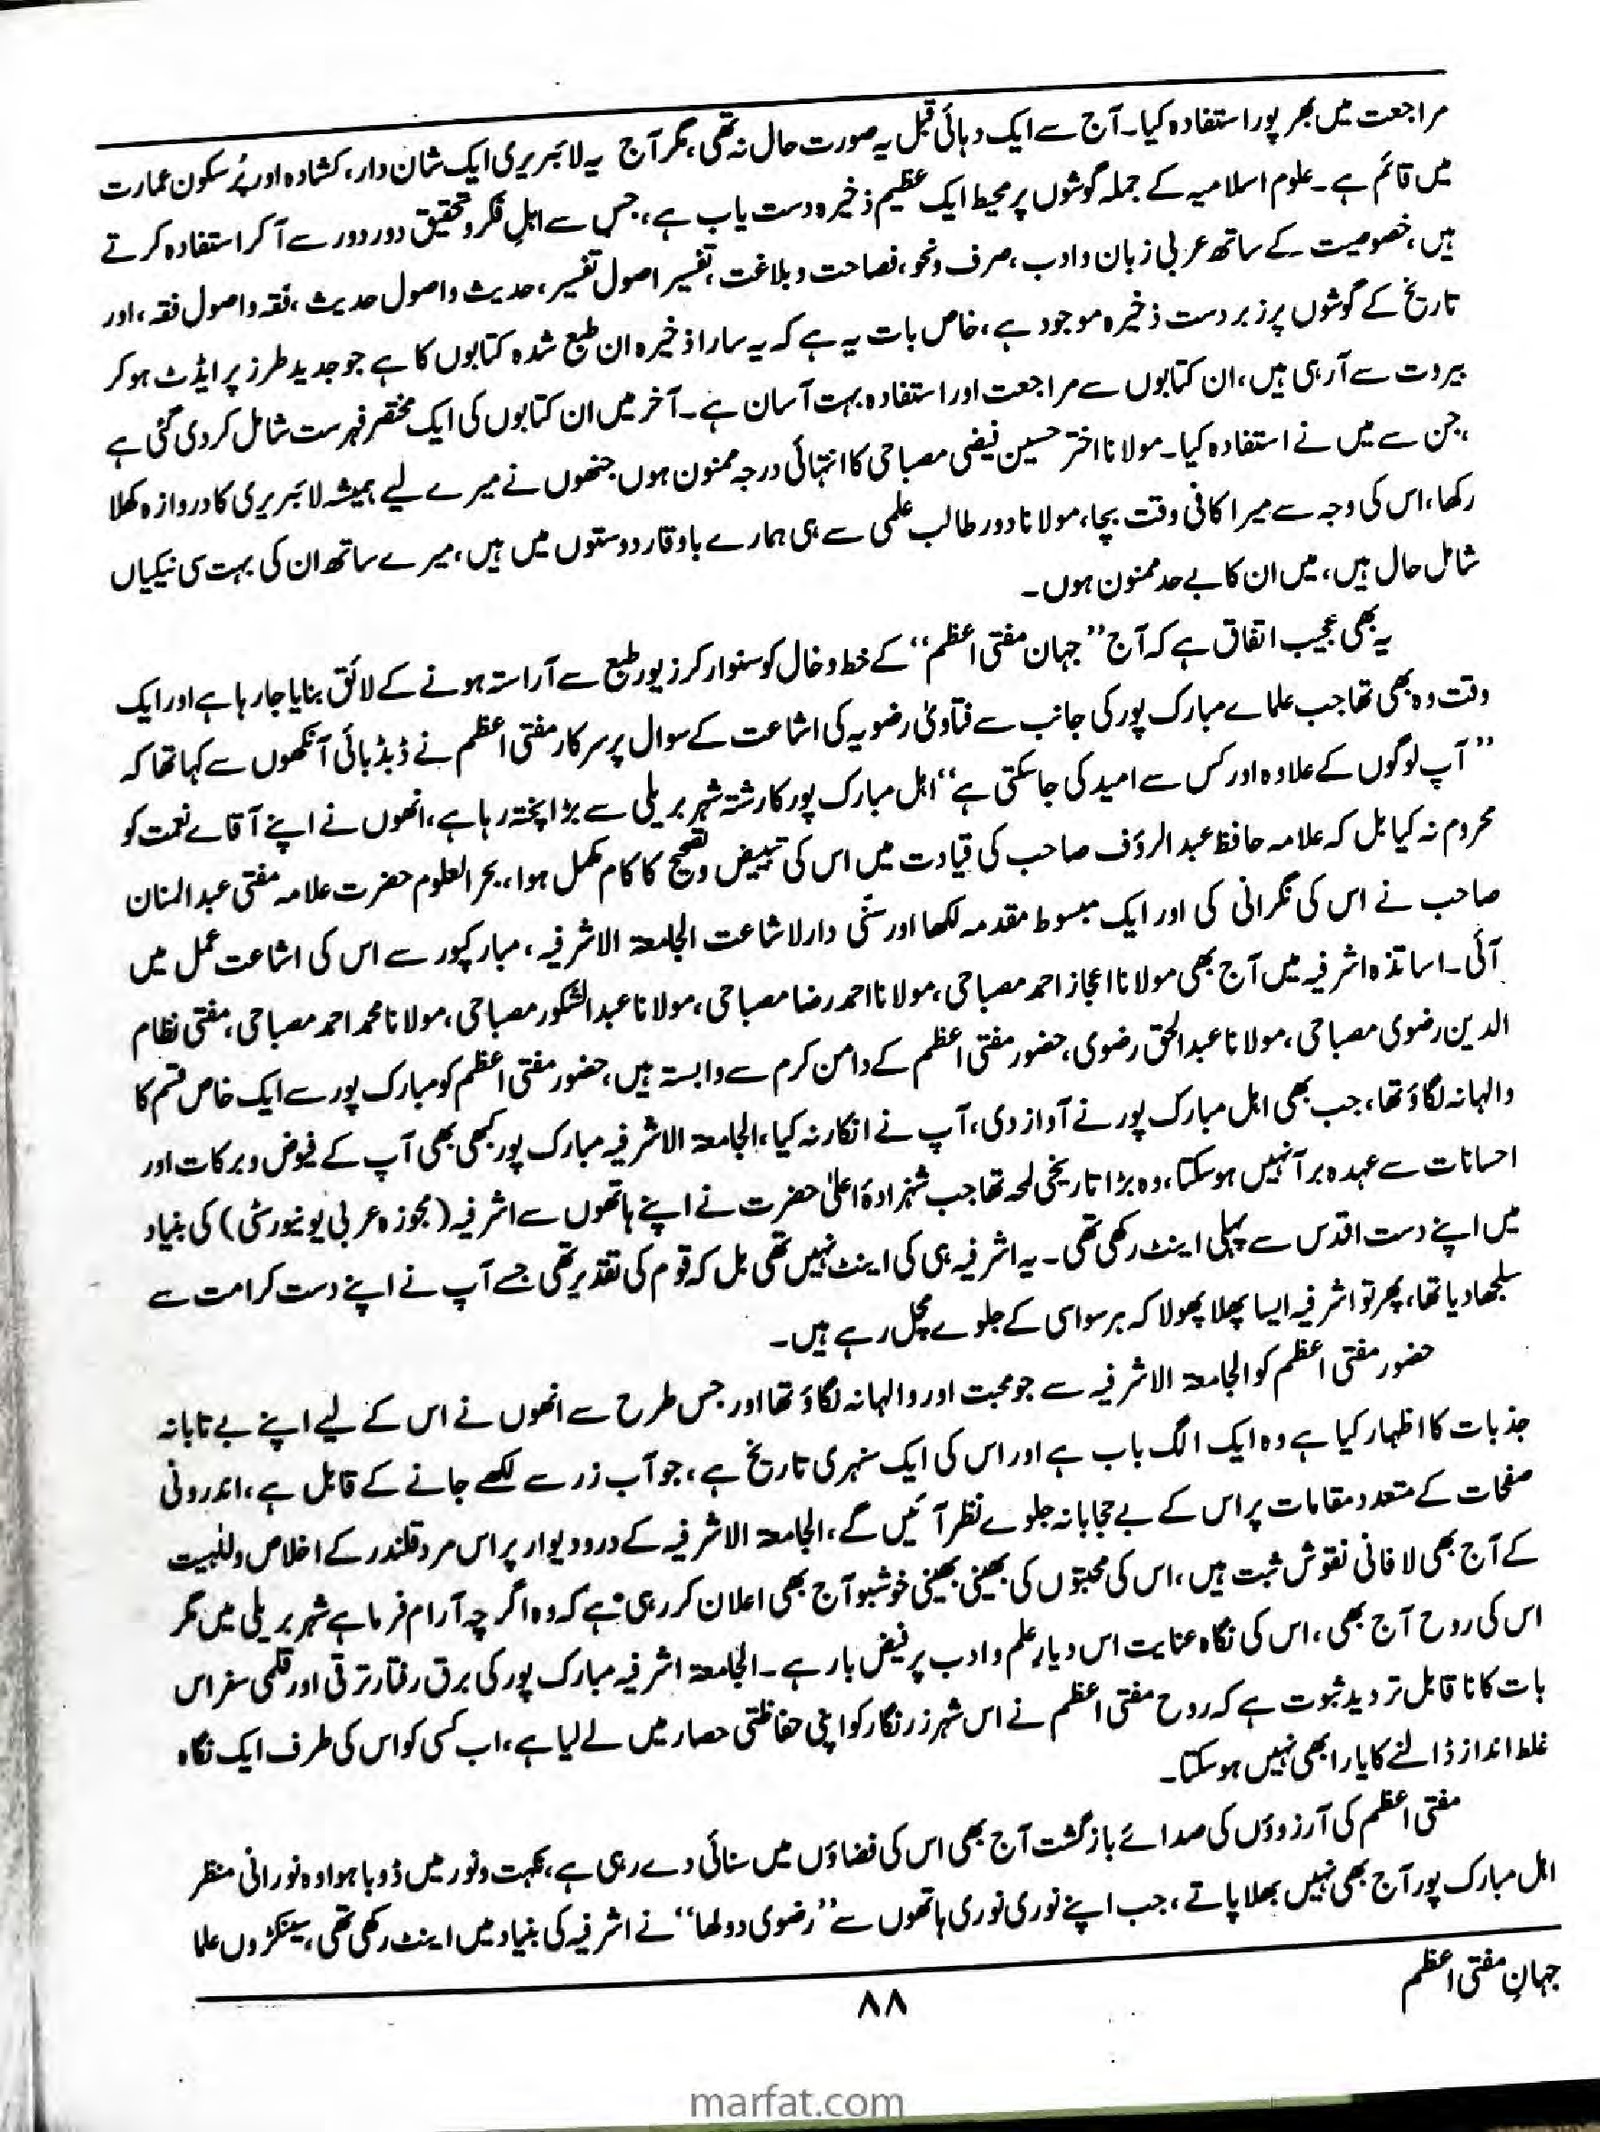 مراجعت میں بھر پور استفادہ کیا۔ آج سے ایک دہائی قبل یہ صورت حال نہ تھی، مگر آج یہ لائبریری ایک شان دار، کشادہ اور پُر سکون عمارت
میں قائم ہے۔ علوم اسلامیہ کے جملہ گوشوں پر محیط ایک عظیم ذخیرہ دست یاب ہے، جس سے اہلِ فکر و تحقیق دور دور سے آ کر استفادہ کرتے
ہیں، خصوصیت کے ساتھ عربی زبان و ادب، صرف و نحو، فصاحت و بلاغت، تفسیر اصول تفسیر، حدیث و اصول حدیث، فقہ و اصول فقہ، اور
تاریخ کے گوشوں پر زبردست ذخیرہ موجود ہے، خاص بات یہ ہے کہ یہ سارا ذخیرہ ان طبع شدہ کتابوں کا ہے جو جدید طرز پر ایڈٹ ہو کر
بیروت سے آرہی ہیں، ان کتابوں سے مراجعت اور استفادہ بہت آسان ہے۔ آخر میں ان کتابوں کی ایک مختصر فہرست شامل کردی گئی ہے
، جن سے میں نے استفادہ کیا۔ مولانا اختر حسین فیضی مصباحی کا انتہائی درجہ ممنون ہوں جنھوں نے میرے لیے ہمیشہ لائبریری کا دروازہ کھلا
رکھا، اس کی وجہ سے میرا کافی وقت بچا، مولانا دور طالب علمی سے ہی ہمارے باوقار دوستوں میں ہیں، میرے ساتھ ان کی بہت سی نیکیاں
شامل حال ہیں، میں ان کا بے حد ممنون ہوں۔
یہ بھی عجیب اتفاق ہے کہ آج ’’جہان مفتی اعظم‘‘ کے خط و خال کو سنوار کر زیور طبع سے آراستہ ہونے کے لائق بنایا جارہا ہے اور ایک
وقت وہ بھی تھا جب علماے مبارک پور کی جانب سے فتاویٰ رضویہ کی اشاعت کے سوال پر سرکار مفتی اعظم نے ڈبڈبائی آنکھوں سے کہا تھا کہ
’’آپ لوگوں کے علاوہ اور کس سے امید کی جاسکتی ہے‘‘ اہل مبارک پور کا رشتہ شہر بریلی سے بڑا پختہ رہا ہے، انھوں نے اپنے آقاے نعمت کو
محروم نہ کیا بل کہ علامہ حافظ عبد الرؤف صاحب کی قیادت میں اس کی تبییض و تصحیح کا کام مکمل ہوا، بحر العلوم حضرت علامہ مفتی عبد المنان
صاحب نے اس کی نگرانی کی اور ایک مبسوط مقدمہ لکھا اور سنّی دارلاشاعت الجامعۃ الاشرفیہ، مبارکپور سے اس کی اشاعت عمل میں
آئی۔ اساتذہ اشرفیہ میں آج بھی مولانا اعجاز احمد مصباحی، مولانا احمد رضا مصباحی، مولانا عبد الشکور مصباحی، مولانا محمد احمد مصباحی، مفتی نظام
الدین رضوی مصباحی، مولانا عبد الحق رضوی، حضور مفتی اعظم کے دامن کرم سے وابستہ ہیں، حضور مفتی اعظم کو مبارک پور سے ایک خاص قسم کا
والہانہ لگاؤ تھا، جب بھی اہل مبارک پور نے آواز دی، آپ نے انکار نہ کیا، الجامعۃ الاشرفیہ مبارک پور کبھی بھی آپ کے فیوض و برکات اور
احسانات سے عہدہ برآ نہیں ہو سکتا، وہ بڑا تاریخی لمحہ تھا جب شہزادۂ اعلیٰ حضرت نے اپنے ہاتھوں سے اشرفیہ (مجوزہ عربی یونیورسٹی) کی بنیاد
میں اپنے دست اقدس سے پہلی اینٹ رکھی تھی۔ یہ اشرفیہ ہی کی اینٹ نہیں تھی بل کہ قوم کی تقدیر تھی جسے آپ نے اپنے دست کرامت سے
سلجھا دیا تھا، پھر تو اشرفیہ ایسا پھلا پھولا کہ ہر سو اسی کے جلوے مچل رہے ہیں۔
حضور مفتی اعظم کو الجامعۃ الاشرفیہ سے جو محبت اور والہانہ لگاؤ تھا اور جس طرح سے انھوں نے اس کے لیے اپنے بے تابانہ
جذبات کا اظہار کیا ہے وہ ایک الگ باب ہے اور اس کی ایک سنہری تاریخ ہے، جو آب زر سے لکھے جانے کے قابل ہے، اندرونی
صفحات کے متعدد مقامات پر اس کے بے حجابانہ جلوے نظر آئیں گے، الجامعۃ الاشرفیہ کے در و دیوار پر اس مرد قلندر کے اخلاص و للہیت
کے آج بھی لافانی نقوش ثبت ہیں، اس کی محبتوں کی بھینی بھینی خوشبو آج بھی اعلان کر رہی ہے کہ وہ اگر چہ آرام فرما ہے شہر بریلی میں مگر
اس کی روح آج بھی، اس کی نگاہ عنایت اس دیارِ علم و ادب پر فیض بار ہے۔ الجامعۃ اشرفیہ مبارک پور کی برق رفتار ترقی اور قلمی سفر اس
بات کا ناقابل تردید ثبوت ہے کہ روح مفتی اعظم نے اس شہر زرنگار کو اپنی حفاظتی حصار میں لے لیا ہے، اب کسی کو اس کی طرف ایک نگاہ
غلط انداز ڈالنے کا یارا بھی نہیں ہو سکتا۔
مفتی اعظم کی آرزوؤں کی صدائے بازگشت آج بھی اس کی فضاؤں میں سنائی دے رہی ہے، نکہت و نور میں ڈوبا ہوا وہ نورانی منظر
اہل مبارک پور آج بھی نہیں بھلا پاتے، جب اپنے نوری نوری ہاتھوں سے ’’رضوی دولھا‘‘ نے اشرفیہ کی بنیاد میں اینٹ رکھی تھی، سینکڑوں علما
جہانِ مفتی اعظم
۸۸
marfat.com